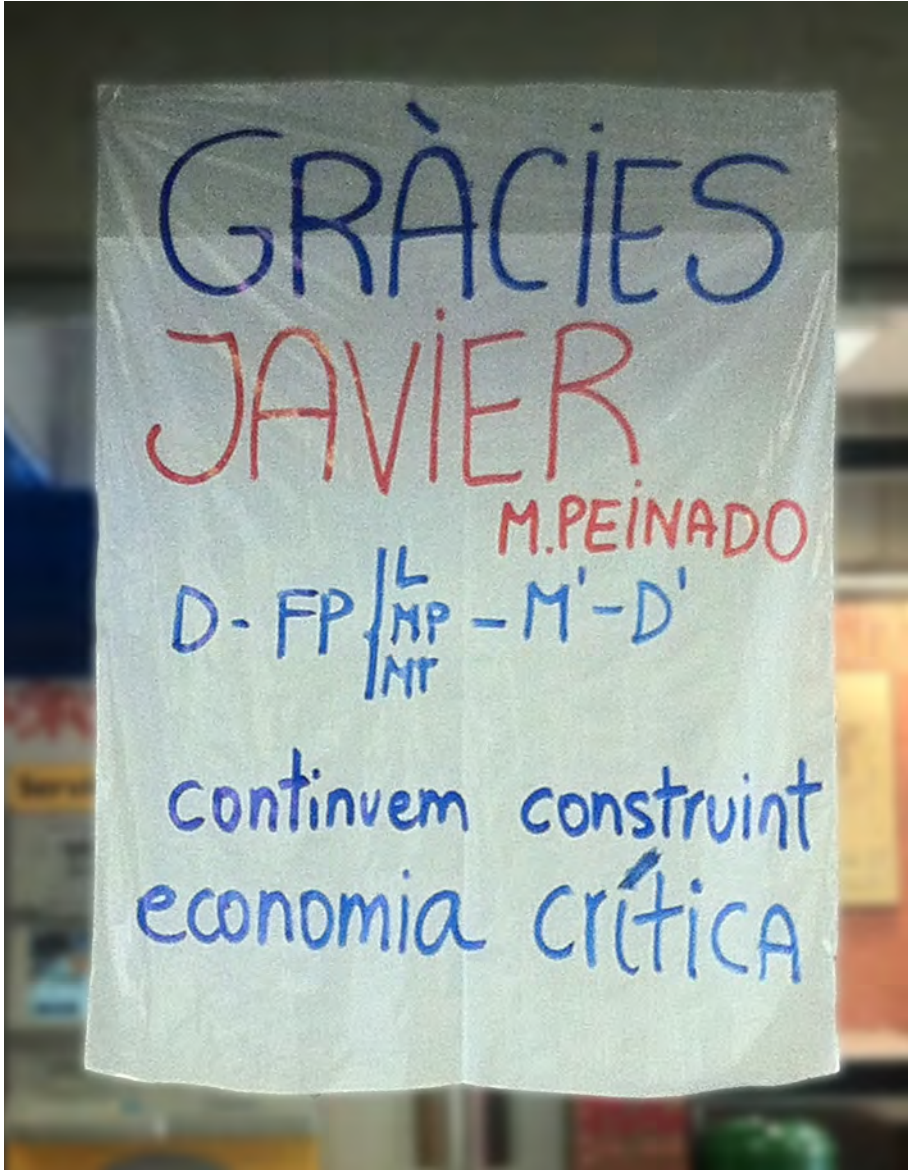 GRÀCIES
JAVIER
M.PEINADO
D - FP { L
MP – M' – D'
MT
continuem construint
economia crítica
Servi